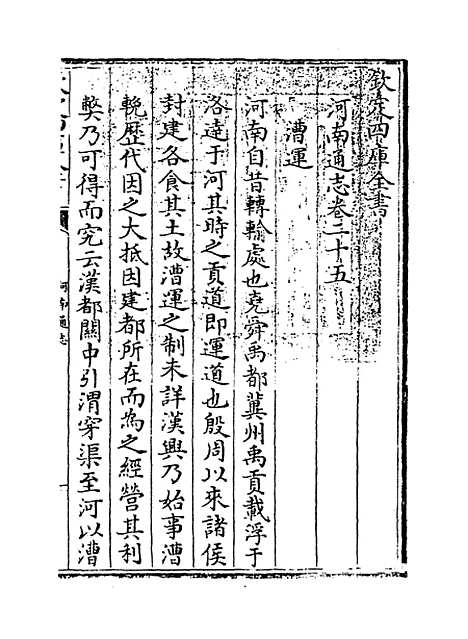 欽定四庫全書
河南通志卷二十五
漕運
河南自昔轉輸處也堯舜禹都冀州禹貢載浮于
洛達于河其時之貢道即運道也殷周以來諸侯
封建各食其土故漕運之制未詳漢興乃始事漕
輓歴代因之大抵因建都所在而為之經營其利
獘乃可得而究云漢都關中引渭穿渠至河以漕
河南通志
一